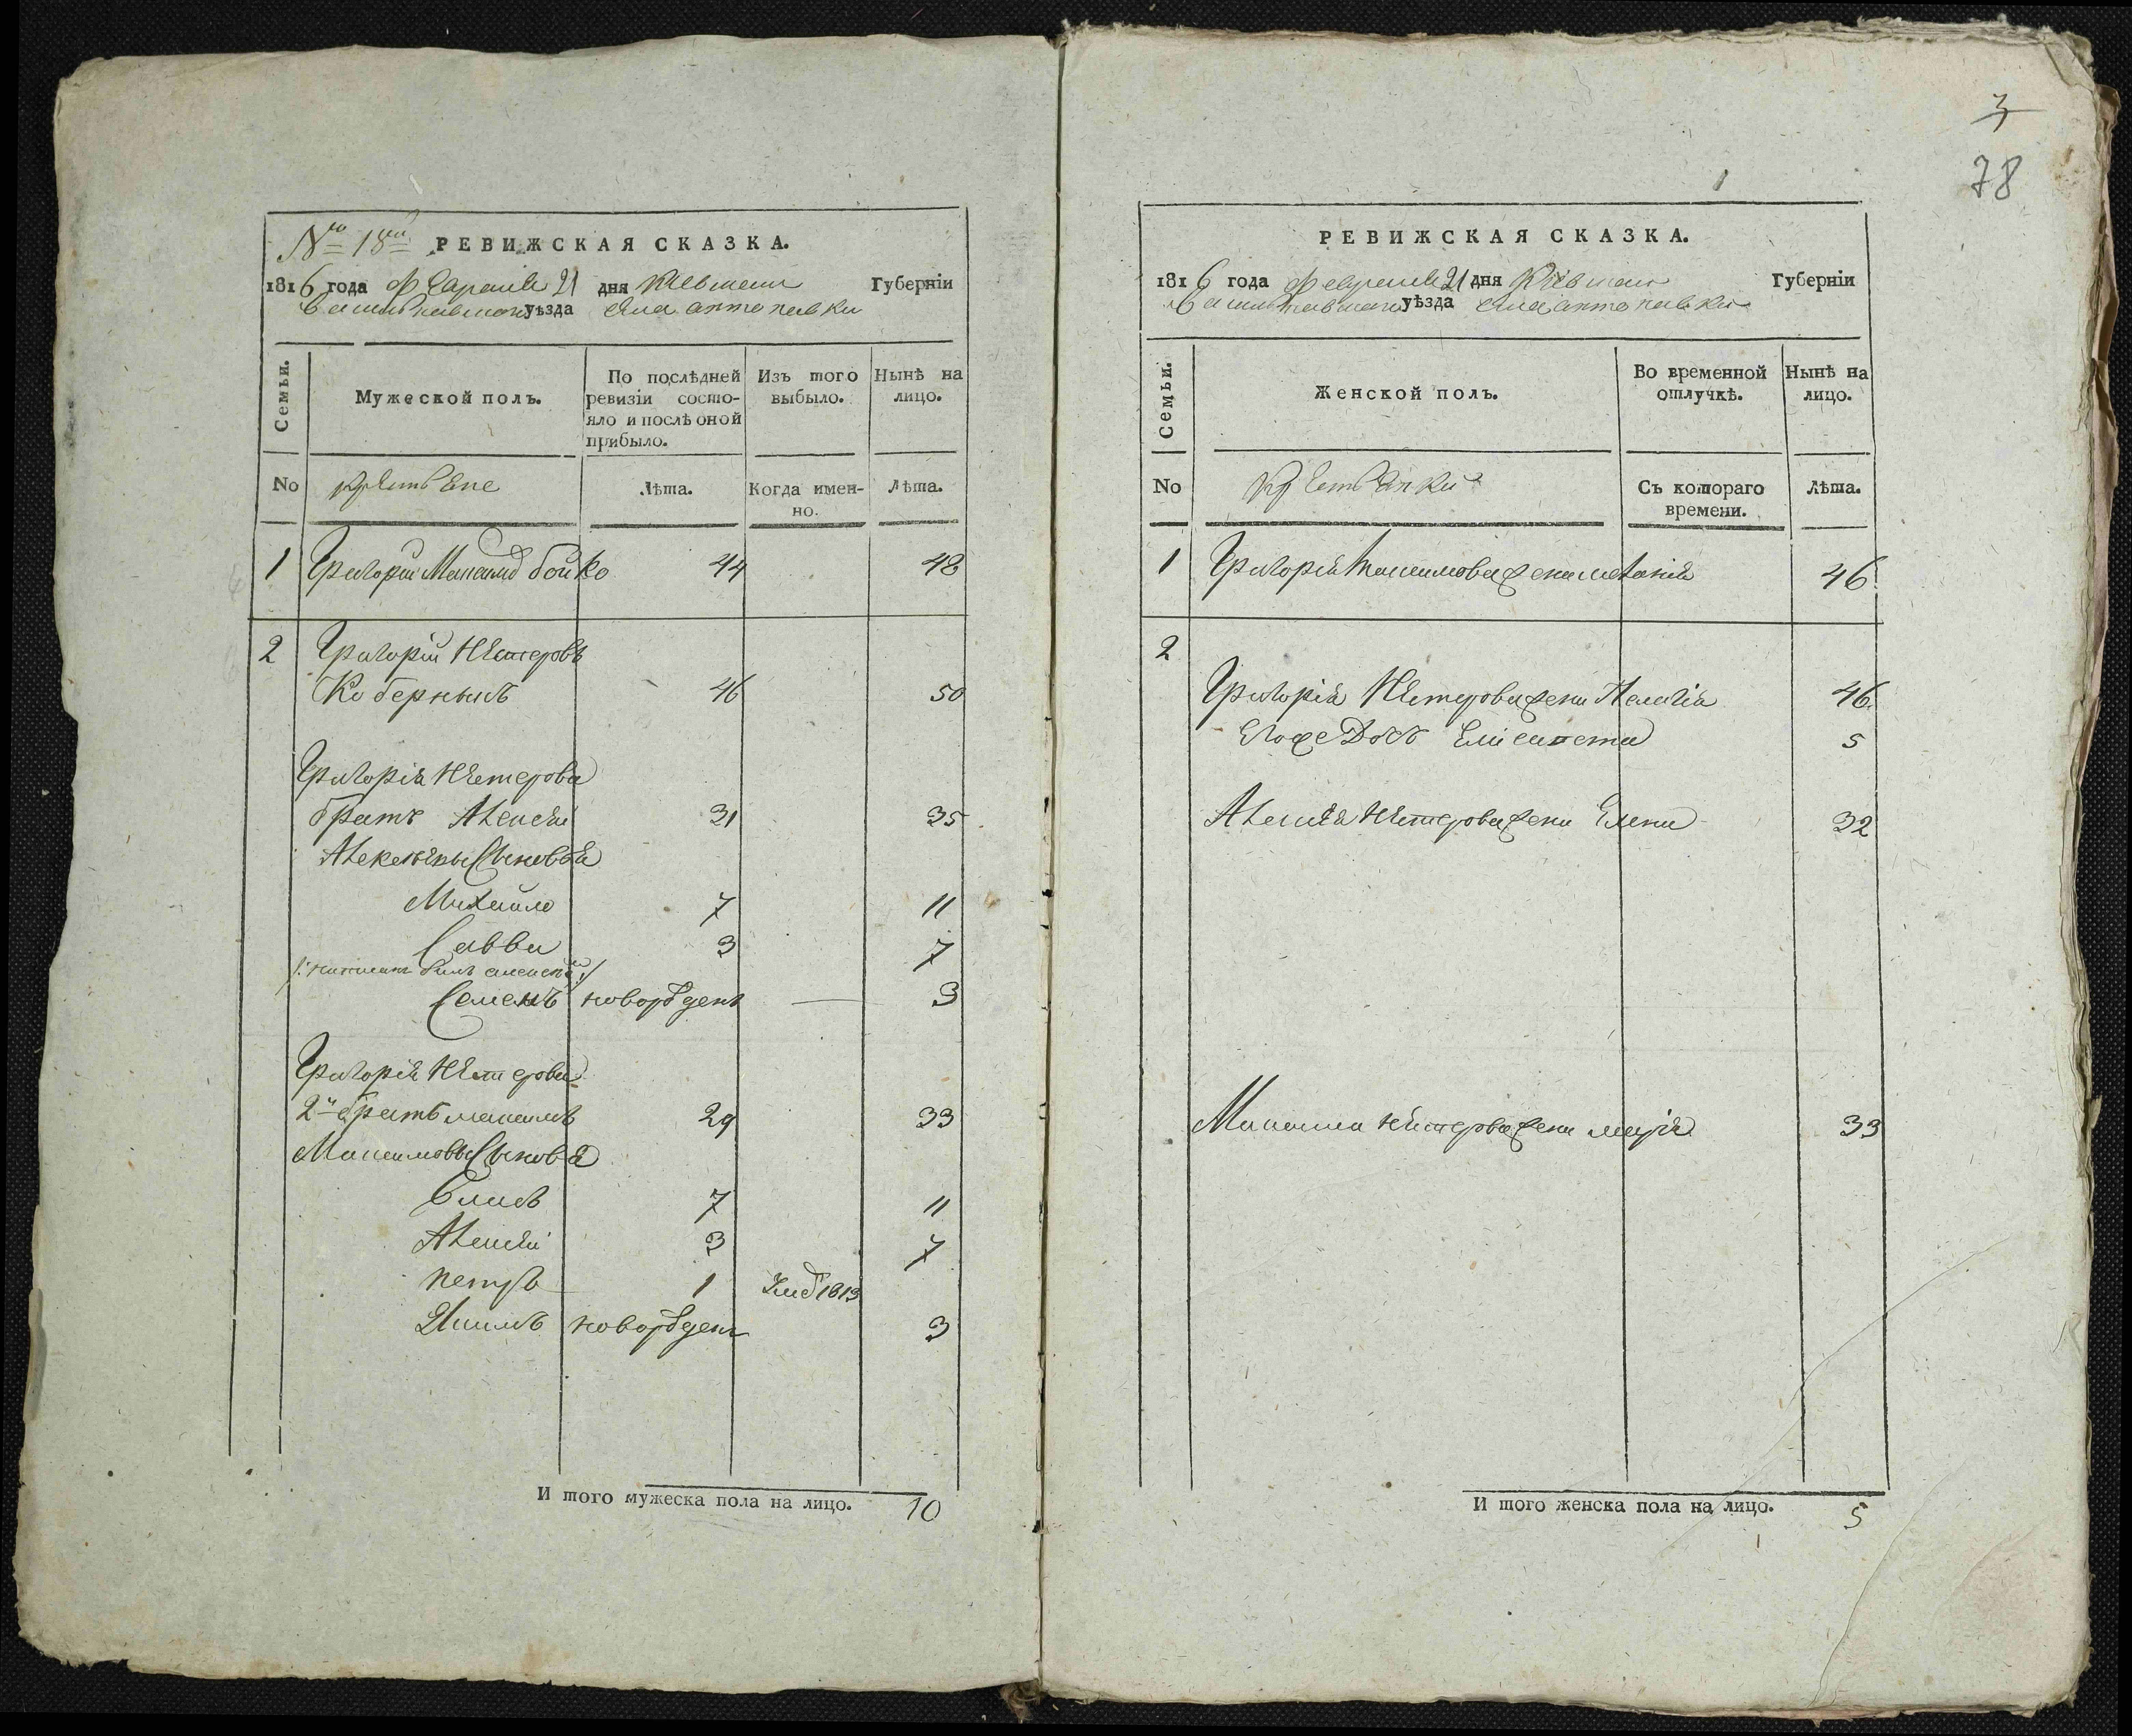 № 18й РЕВИЖСКАЯ СКАЗКА.
1816 года Февраля 21 дня Киевской Губернїи
Васильковского уѣзда Села Антоновки
Семьи.
Мужеской полъ.
По послѣдней ревизїи состояло и послѣ оной прибыло.
Изъ того выбыло.
Нынѣ на лицо.
No крестьяне
Лѣта.
Когда именно.
Лѣта.
1 Григорій Максимов бойко 44 48
2 Григорій Нестеровъ
46 50
Григорія Нестерова
братъ Алексѣй 31 35
Алексѣевы Сыновья
Михайло 7 11
Савва 3 7
Семенъ новорожден 3
Григорія Нестерова
2й братъ максимъ 29 33
Максимовы Сыновья
7 11
Алексѣй 3 7
петръ 1 1813
новорожден 3
И того мужеска пола на лицо. 10
3
78
РЕВИЖСКАЯ СКАЗКА.
1816 года Февраля 21 дня Киевской Губернїи
Васильковского уѣзда Села антоновки
Семьи.
Женской полъ.
Во временной отлучкѣ.
Нынѣ на лицо.
No крестьянки
Съ котораго времени.
Лѣта.
1 Григорія Максимова жена меланія 46
2
Григорія Нестерова жена Пелагія 46
Его же Дочь Елисавета 5
Алексѣя Нестерова жена Елена 32
Максима нестерова жена марія 33
И того женска пола на лицо. 5